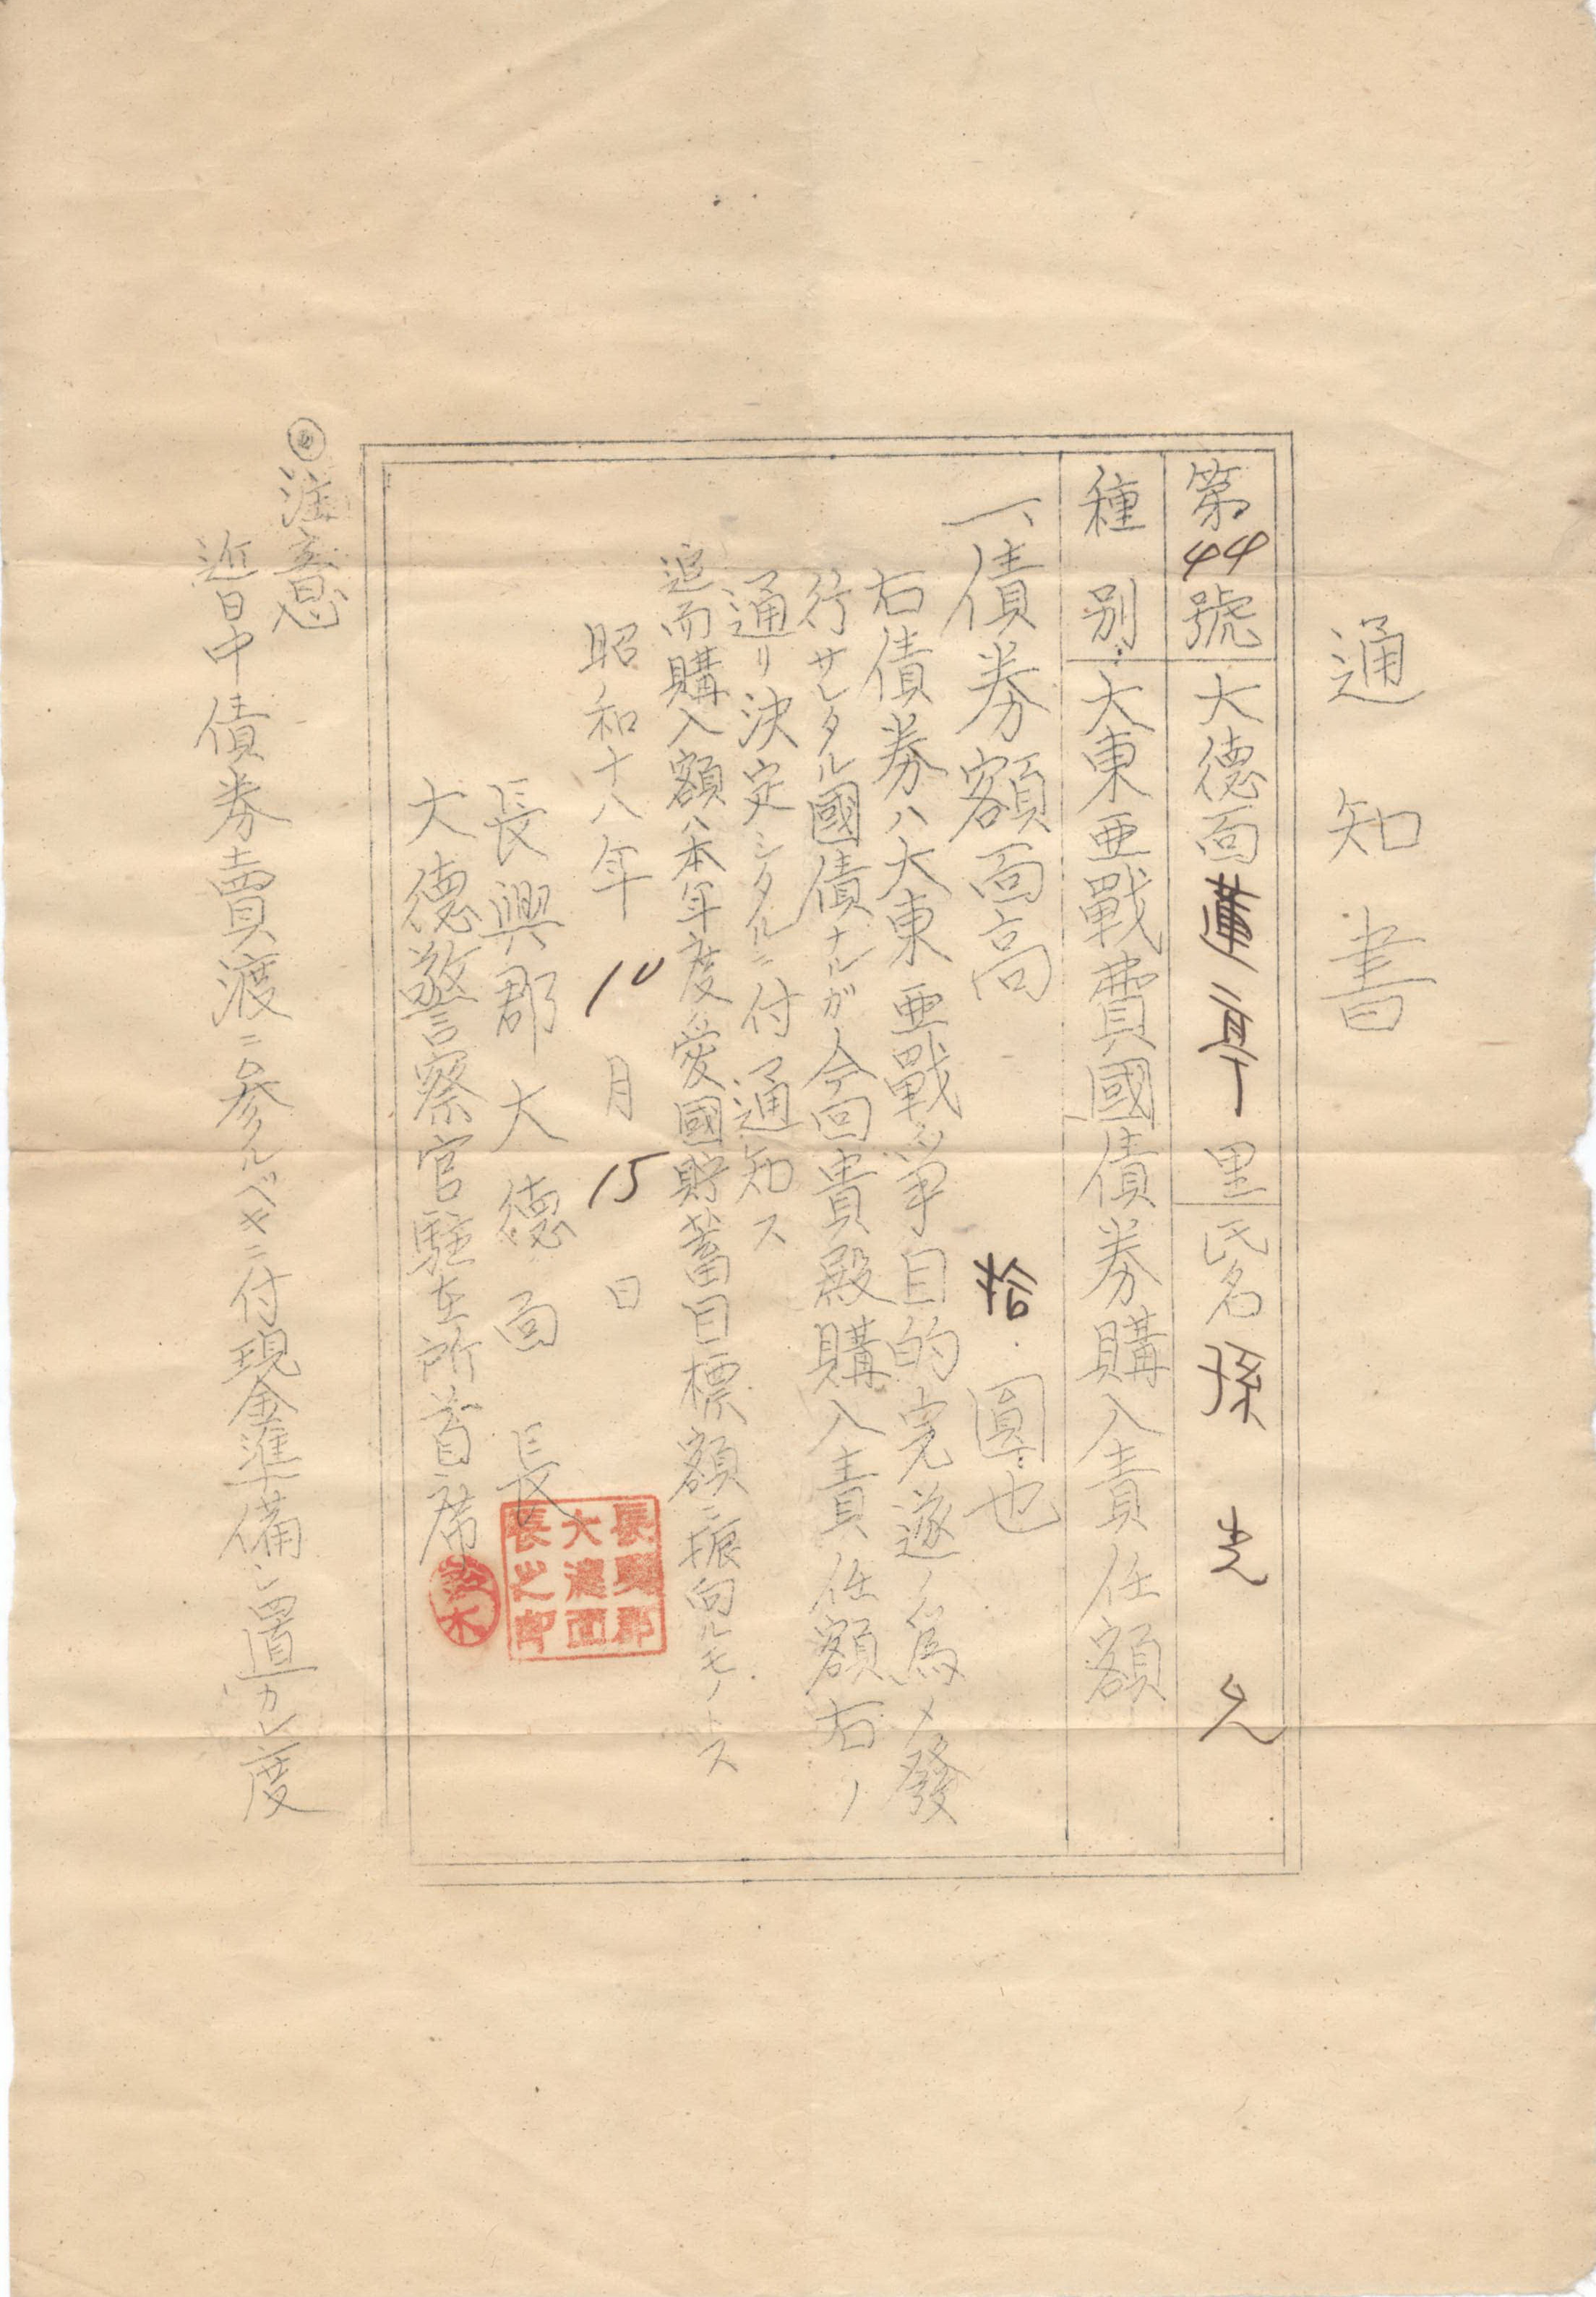 通知書
第44號 大德面蓮亭里 氏名 孫
種別 大東亜戰費國債券購入責任額
一、債券額面高 拾圓也
右債券ハ大東亜戰爭目的完遂ノ爲メ發
行サレタル國債ナルガ今回貴殿購入責任額右ノ
通リ決定シタルニ付通知ス
追而購入額ハ本年度愛國貯蓄目標額ニ振向ルモノトス
昭和十八年10月15日
長興郡大德面長
長興郡大德面長之印
大德警察官駐在所首席
注意
近日中債券賣渡ニ參ルベキニ付現金準備シ置カレ度